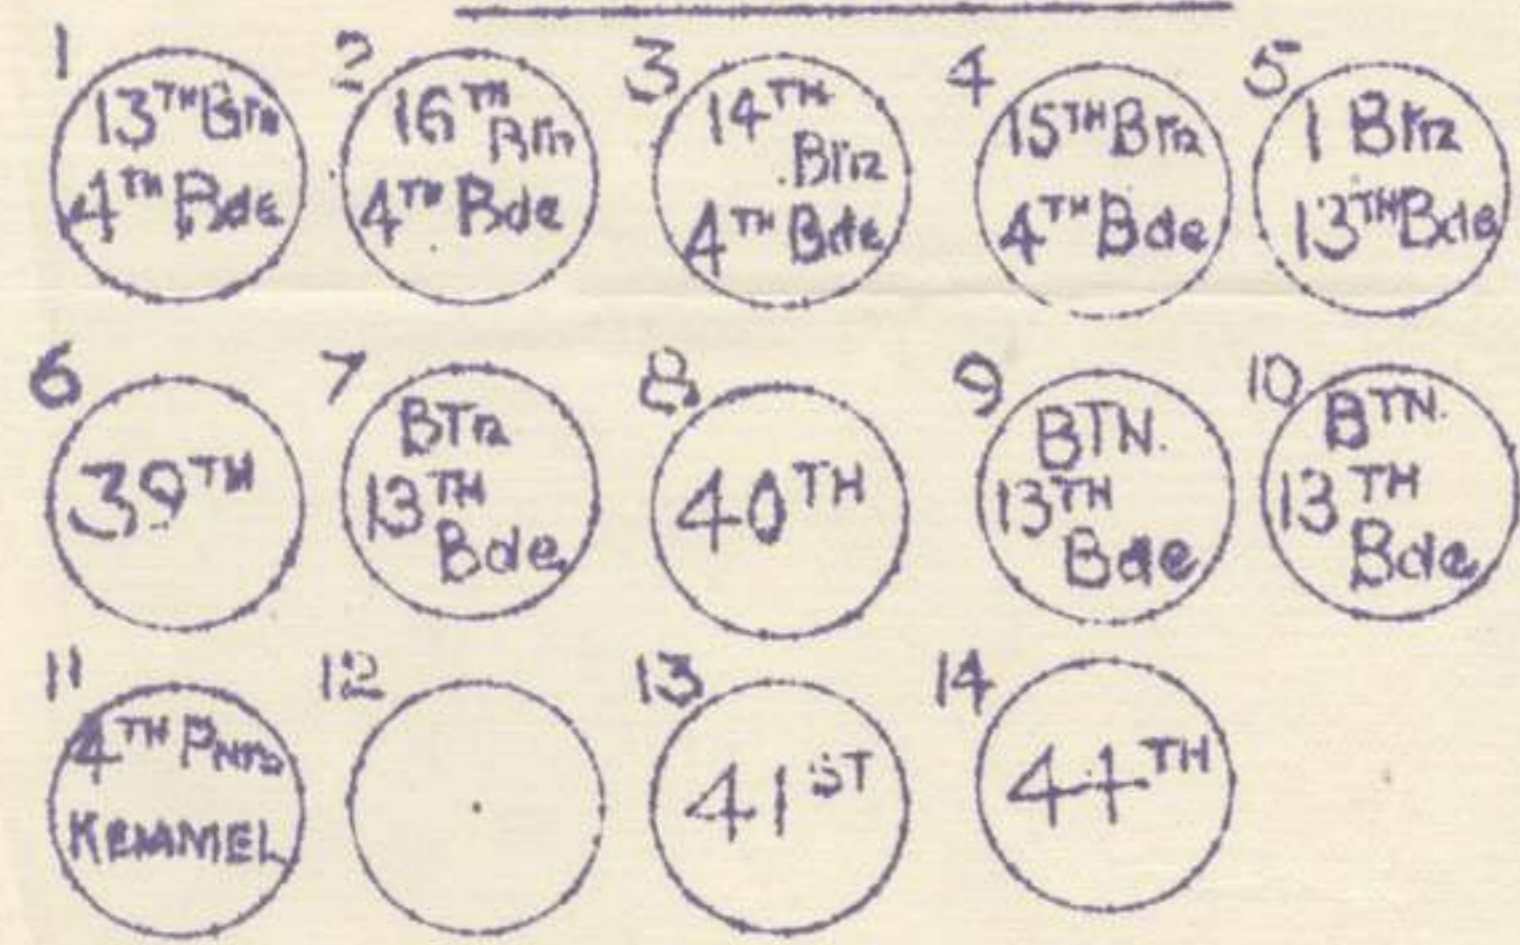 1
13TH BTn
4TH Bde
2
16TH
BTn
4TH Bde
3
14TH
BTn
4TH Bde
4
15TH BTn
4TH Bde
5
1 BTn
13TH Bde
6
39TH
7
BTn
13TH
Bde
8
40TH
9
BTN.
13TH
Bde
10
BTN.
13TH
Bde
11
4TH PNrs
KEMMEL
12
13
41ST
14
44TH